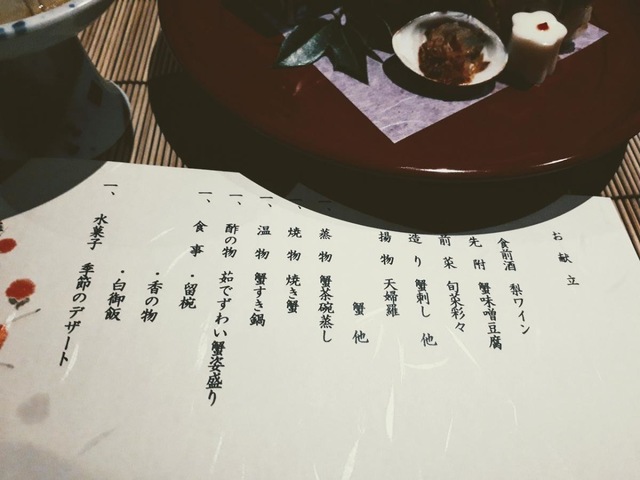 お献立
食前酒 梨ワイン
先附 蟹味噌豆腐
前菜 旬菜彩々
造り 蟹刺し 他
揚物 天婦羅
蟹 他
蒸物 蟹茶碗蒸し
一、焼物 焼き蟹
一、温物 蟹すき鍋
一、酢の物 茹でずわい蟹姿盛り
一、食事 ・留椀
・香の物
・白御飯
一、水菓子 季節のデザート